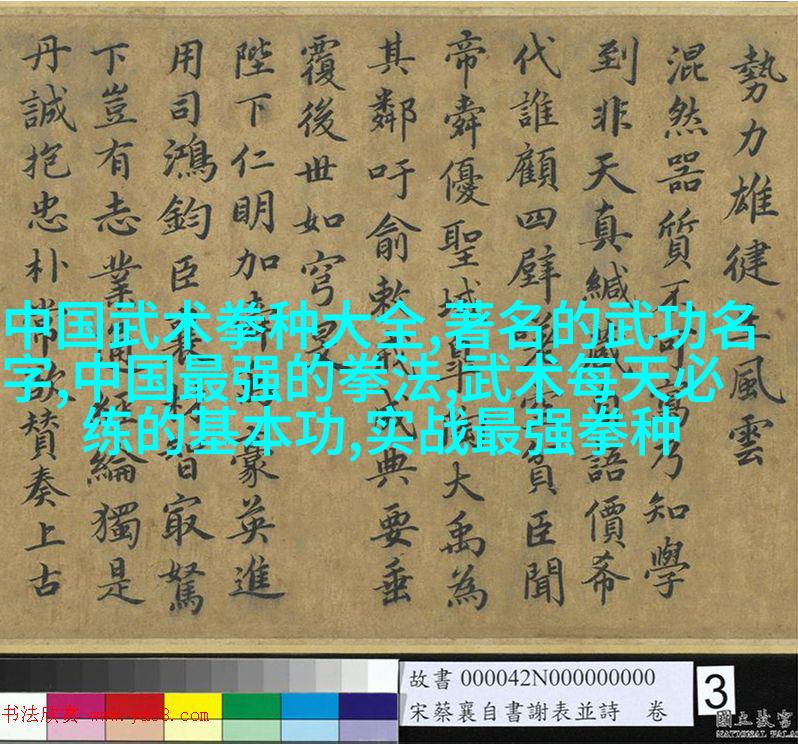 勢力雄徤生風雲
混然器質不可寫乃知學
到非天真緘語價希
代誰顧四壁貧臣聞
帝舜優聖域大禹為
其鄰吁俞敕戒成典要垂
覆後世如穹旻
陛下仁明加豪英進
用司鴻鈞臣襄材智冣駑
下豈有志業經綸獨是
丹誠抱忠朴常欲賛奏上古
中国武术拳种大全,著名的武功名
字,中国最强的拳法,武术每天必
练的基本功,实战最强拳种
故書 000042N000000000
宋蔡襄自書謝表並詩 卷
3
國立故宮
NATIONAL PALA
书法欣赏 www.yac8.com